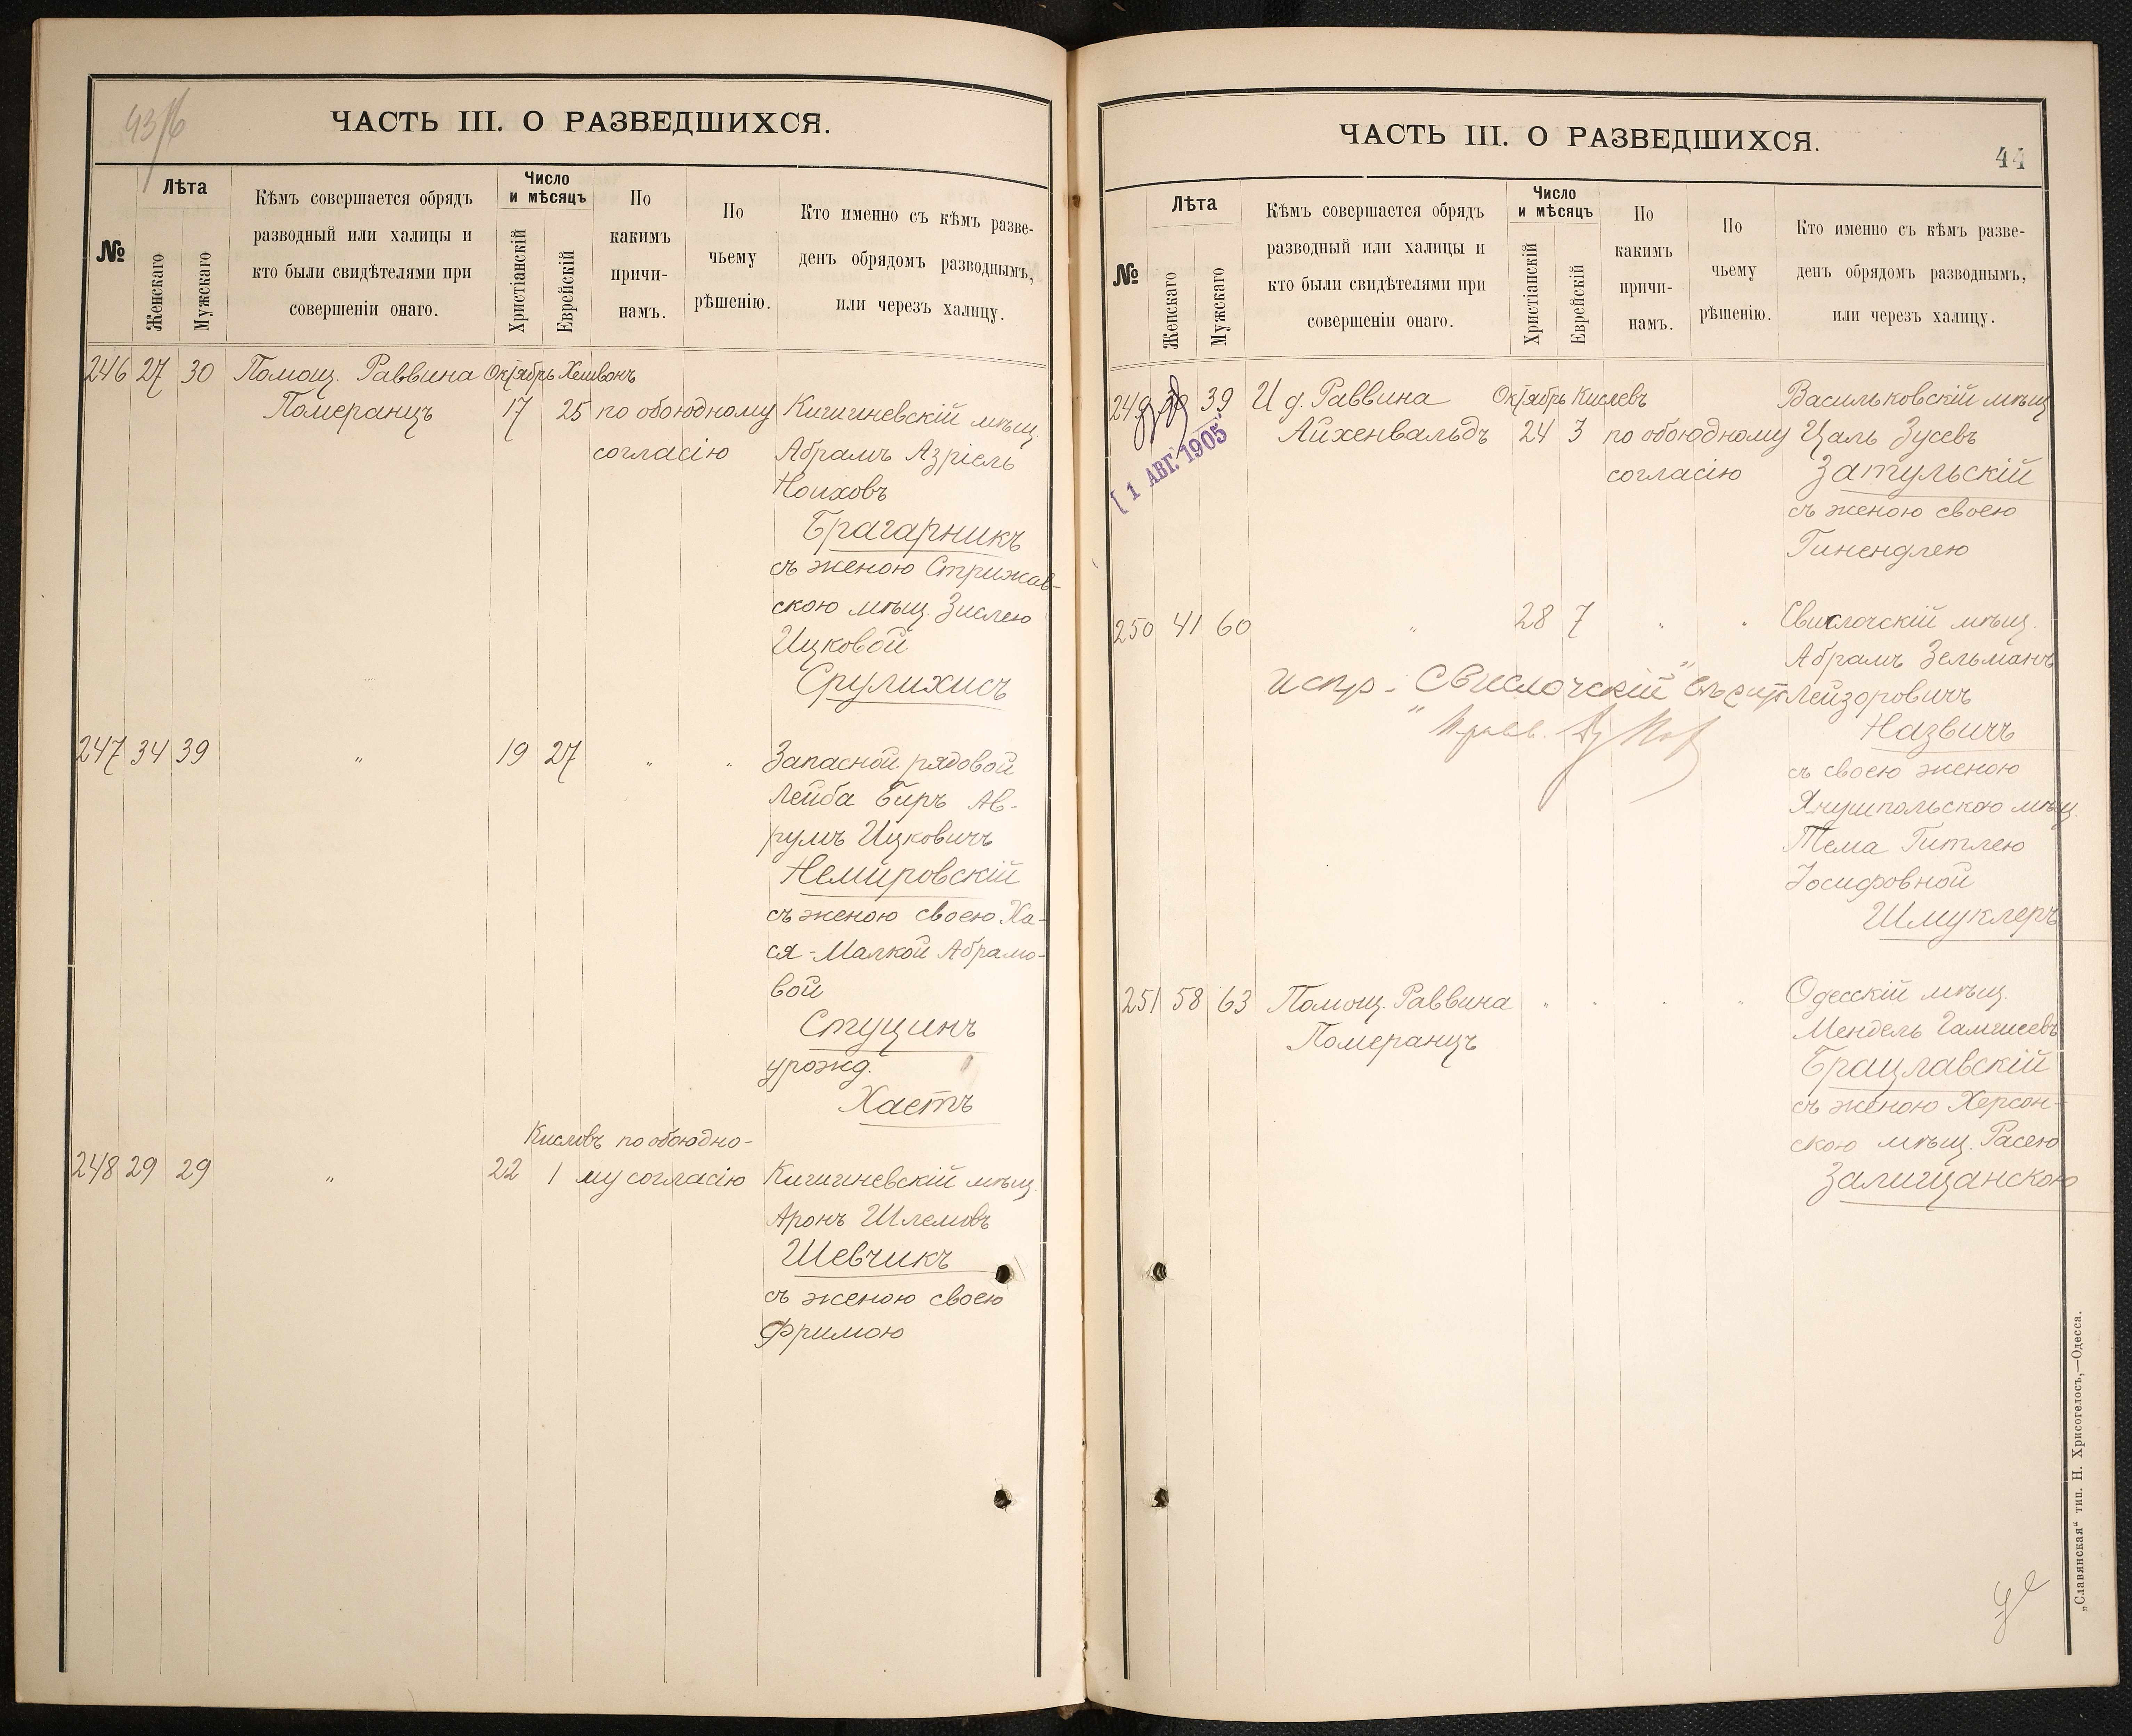 43/б
ЧАСТЬ III. О РАЗВЕДШИХСЯ.
№
Лѣта
Женскаго
Мужскаго
Кѣмъ совершается обрядъ
разводный или халицы и
кто были свидѣтелями при
совершеніи онаго.
Число
и мѣсяцъ
Христіанскій
Еврейскій
По
какимъ
причи-
намъ.
По
чьему
рѣшенію.
Кто именно съ кѣмъ разве-
денъ обрядомъ разводнымъ,
или черезъ халицу.
246 27 30 Помощ. Раввина Октябрь Хешвонъ
Померанцъ 17 25 по обоюдному Кишиневскій мѣщ.
согласію Абрамъ Азріель
Ноиховъ
Брагарникъ
съ женою Стрижав-
скою мѣщ. Зислею
Ицковой
Срулихисъ
247 34 39 " 19 27 " " Запасной рядовой
Лейба Беръ Ав-
румъ Ицковичъ
Немировскій
съ женою своею Ха-
ся-Малкой Абрамо-
вой
Стуцинъ
урожд.
Хастъ
Кислевъ по обоюдно-
248 29 29 " 22 1 му согласію Кишиневскій мѣщ.
Аронъ Шлемовъ
Шевчикъ
съ женою своею
Фримою
ЧАСТЬ III. О РАЗВЕДШИХСЯ.
44
№
Лѣта
Женскаго
Мужскаго
Кѣмъ совершается обрядъ
разводный или халицы и
кто были свидѣтелями при
совершеніи онаго.
Число
и мѣсяцъ
Христіанскій
Еврейскій
По
какимъ
причи-
намъ.
По
чьему
рѣшенію.
Кто именно съ кѣмъ разве-
денъ обрядомъ разводнымъ,
или черезъ халицу.
249 39 И д. Раввина Октябрь Кислевъ Васильковскій мѣщ
Айхенвальдъ 24 3 по обоюдному Цаль Зусевъ
1 АВГ. 1905
согласію Затульскій
съ женою своею
Гинендлею
250 41 60 " 28 7 " " Свислочскій мѣщ.
Абрамъ Зельманъ
испр. "Свислочскій" Лейзоровичъ
Назвичъ
съ своею женою
Янушпольскою мѣщ.
Тема Гитлею
Іосифовной
Шмуклеръ
251 58 63 Помощ. Раввина " " " " Одесскій мѣщ.
Померанцъ Мендель
Брацлавскій
съ женою Херсон-
скою мѣщ. Расею
Залищанскою
„Славянская“ тип. Н. Хрисогелосъ,—Одесса.